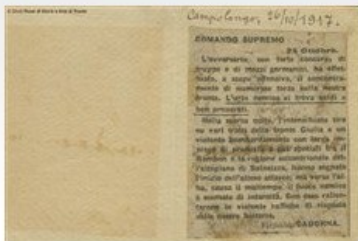 © Civici Musei di Storia e Arte di Trieste
Campolongo, 26/10/1917.
COMANDO SUPREMO
24 Ottobre.
L'avversario, con forte concorso di
truppe e di mezzi germanici, ha effet-
tuato, a scopo offensivo, il concentra-
mento di numerose forze sulla nostra
fronte. L'urto nemico ci trova saldi e
ben preparati.
Nella scorsa notte, l'intensificato tiro
su vari tratti della fronte Giulia e un
violento bombardamento con largo im-
piego di proiettili a gas speciali fra il
Rombon e la regione settentrionale del-
l'altopiano di Bainsizza, hanno segnato
l'inizio dell'atteso attacco; ma verso l'al-
ba, causa il maltempo, il fuoco nemico
è scemato di intensità. Con esso rallen-
tarono le violente raffiche di risposta
delle nostre batterie.
CADORNA.